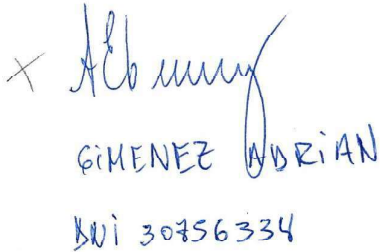 GIMENEZ ADRIAN
DNI 30756334